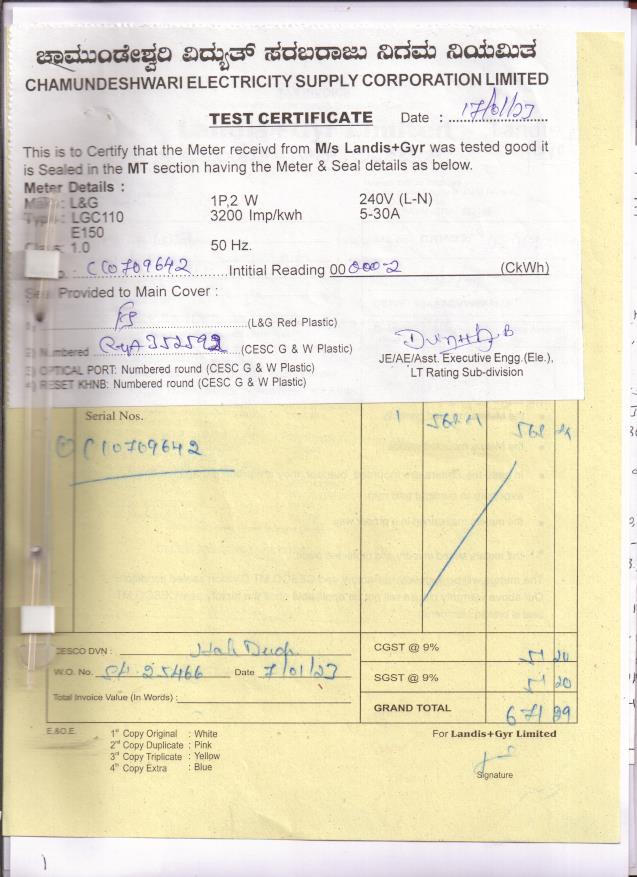 ಚಾಮುಂಡೇಶ್ವರಿ ವಿದ್ಯುತ್ ಸರಬರಾಜು ನಿಗಮ ನಿಯಮಿತ
CHAMUNDESHWARI ELECTRICITY SUPPLY CORPORATION LIMITED
TEST CERTIFICATE Date : 17/01/23
This is to Certify that the Meter receivd from M/s Landis+Gyr was tested good it
is Sealed in the MT section having the Meter & Seal details as below.
Meter Details :
L&G 1P,2 W 240V (L-N)
LGC110 3200 Imp/kwh 5-30A
E150
1.0 50 Hz.
CC0709642 Intitial Reading 00 000-2 (CkWh)
Seal Provided to Main Cover :
(L&G Red Plastic)
2) Numbered 352592 (CESC G & W Plastic)
3) OPTICAL PORT: Numbered round (CESC G & W Plastic)
4) RESET KHNB: Numbered round (CESC G & W Plastic)
JE/AE/Asst. Executive Engg.(Ele.),
LT Rating Sub-division
Serial Nos. 1
CC0709642
CESCO DVN :
W.O. No. 25466 Date 7/01/23
Total Invoice Value (In Words) :
CGST @ 9% 51 20
SGST @ 9% 51 20
GRAND TOTAL 671 39
E.&O.E.
1st Copy Original : White
2nd Copy Duplicate : Pink
3rd Copy Triplicate : Yellow
4th Copy Extra : Blue
For Landis+Gyr Limited
Signature